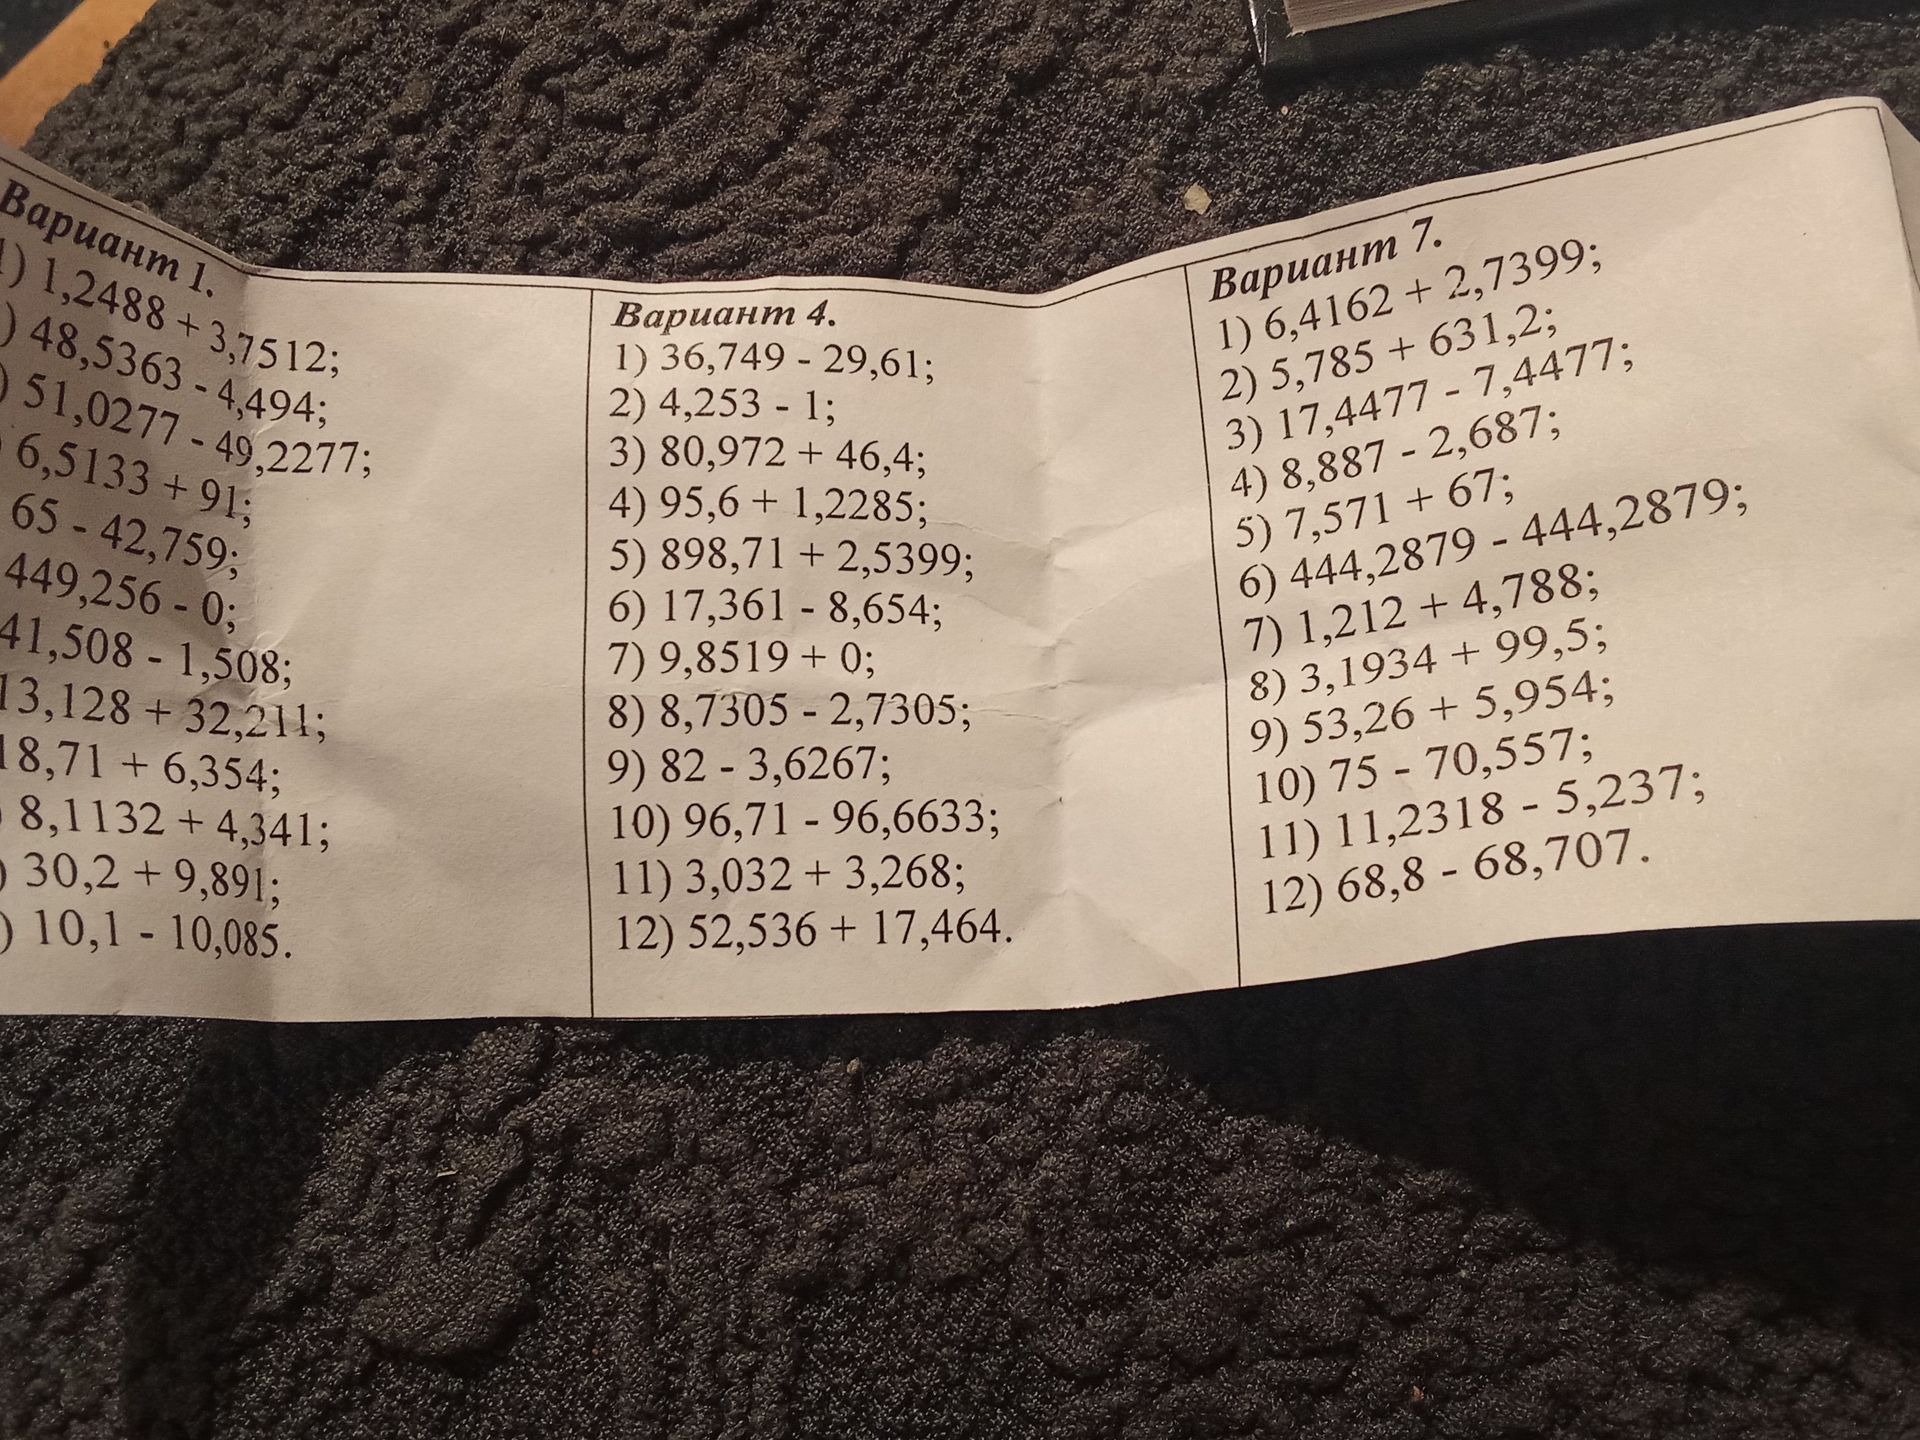 Вариант 1.
1) 1,2488 + 3,7512;
) 48,5363 - 4,494;
) 51,0277 - 49,2277;
6,5133 + 91;
65 - 42,759;
449,256 - 0;
41,508 - 1,508;
13,128 + 32,211;
18,71 + 6,354;
8,1132 + 4,341;
) 30,2 + 9,891;
) 10,1 - 10,085.
Вариант 4.
1) 36,749 - 29,61;
2) 4,253 - 1;
3) 80,972 + 46,4;
4) 95,6 + 1,2285;
5) 898,71 + 2,5399;
6) 17,361 - 8,654;
7) 9,8519 + 0;
8) 8,7305 - 2,7305;
9) 82 - 3,6267;
10) 96,71 - 96,6633;
11) 3,032 + 3,268;
12) 52,536 + 17,464.
Вариант 7.
1) 6,4162 + 2,7399;
2) 5,785 + 631,2;
3) 17,4477 - 7,4477;
4) 8,887 - 2,687;
5) 7,571 + 67;
6) 444,2879 - 444,2879;
7) 1,212 + 4,788;
8) 3,1934 + 99,5;
9) 53,26 + 5,954;
10) 75 - 70,557;
11) 11,2318 - 5,237;
12) 68,8 - 68,707.